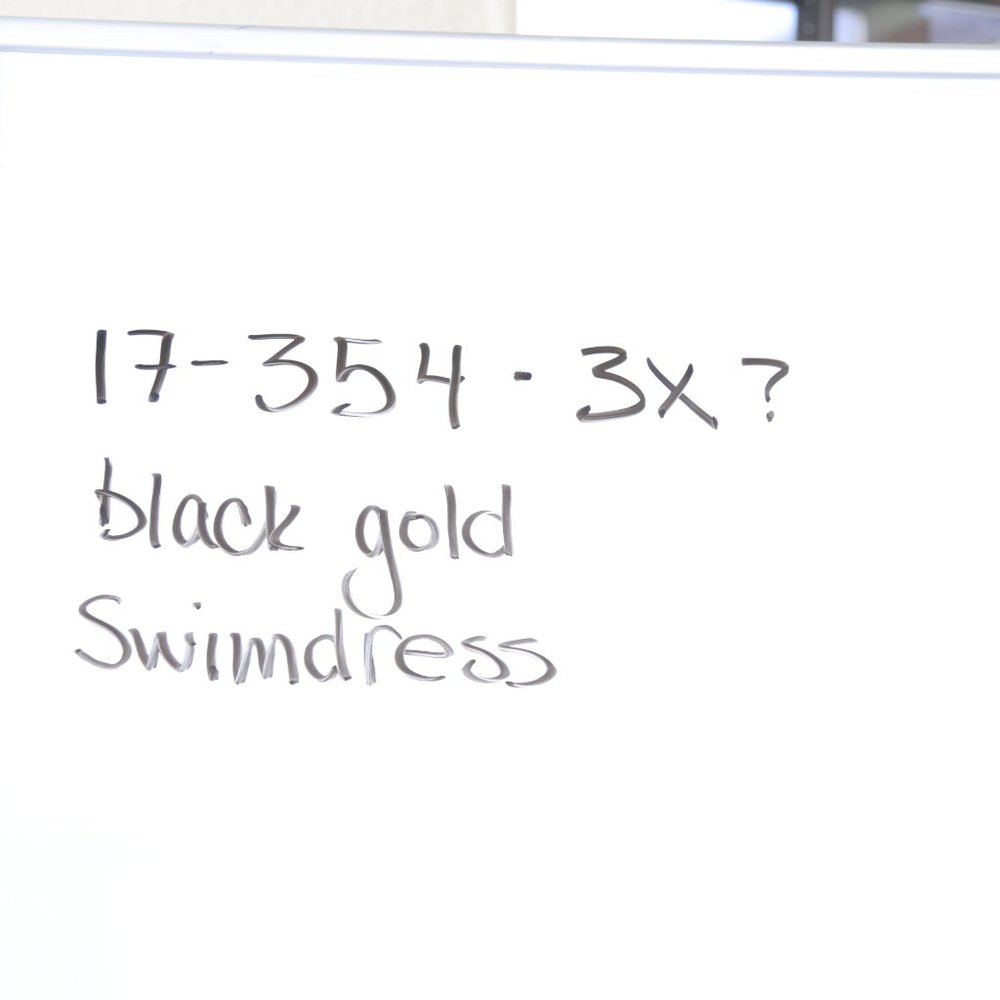 17-354 - 3x?
black gold
Swimdress